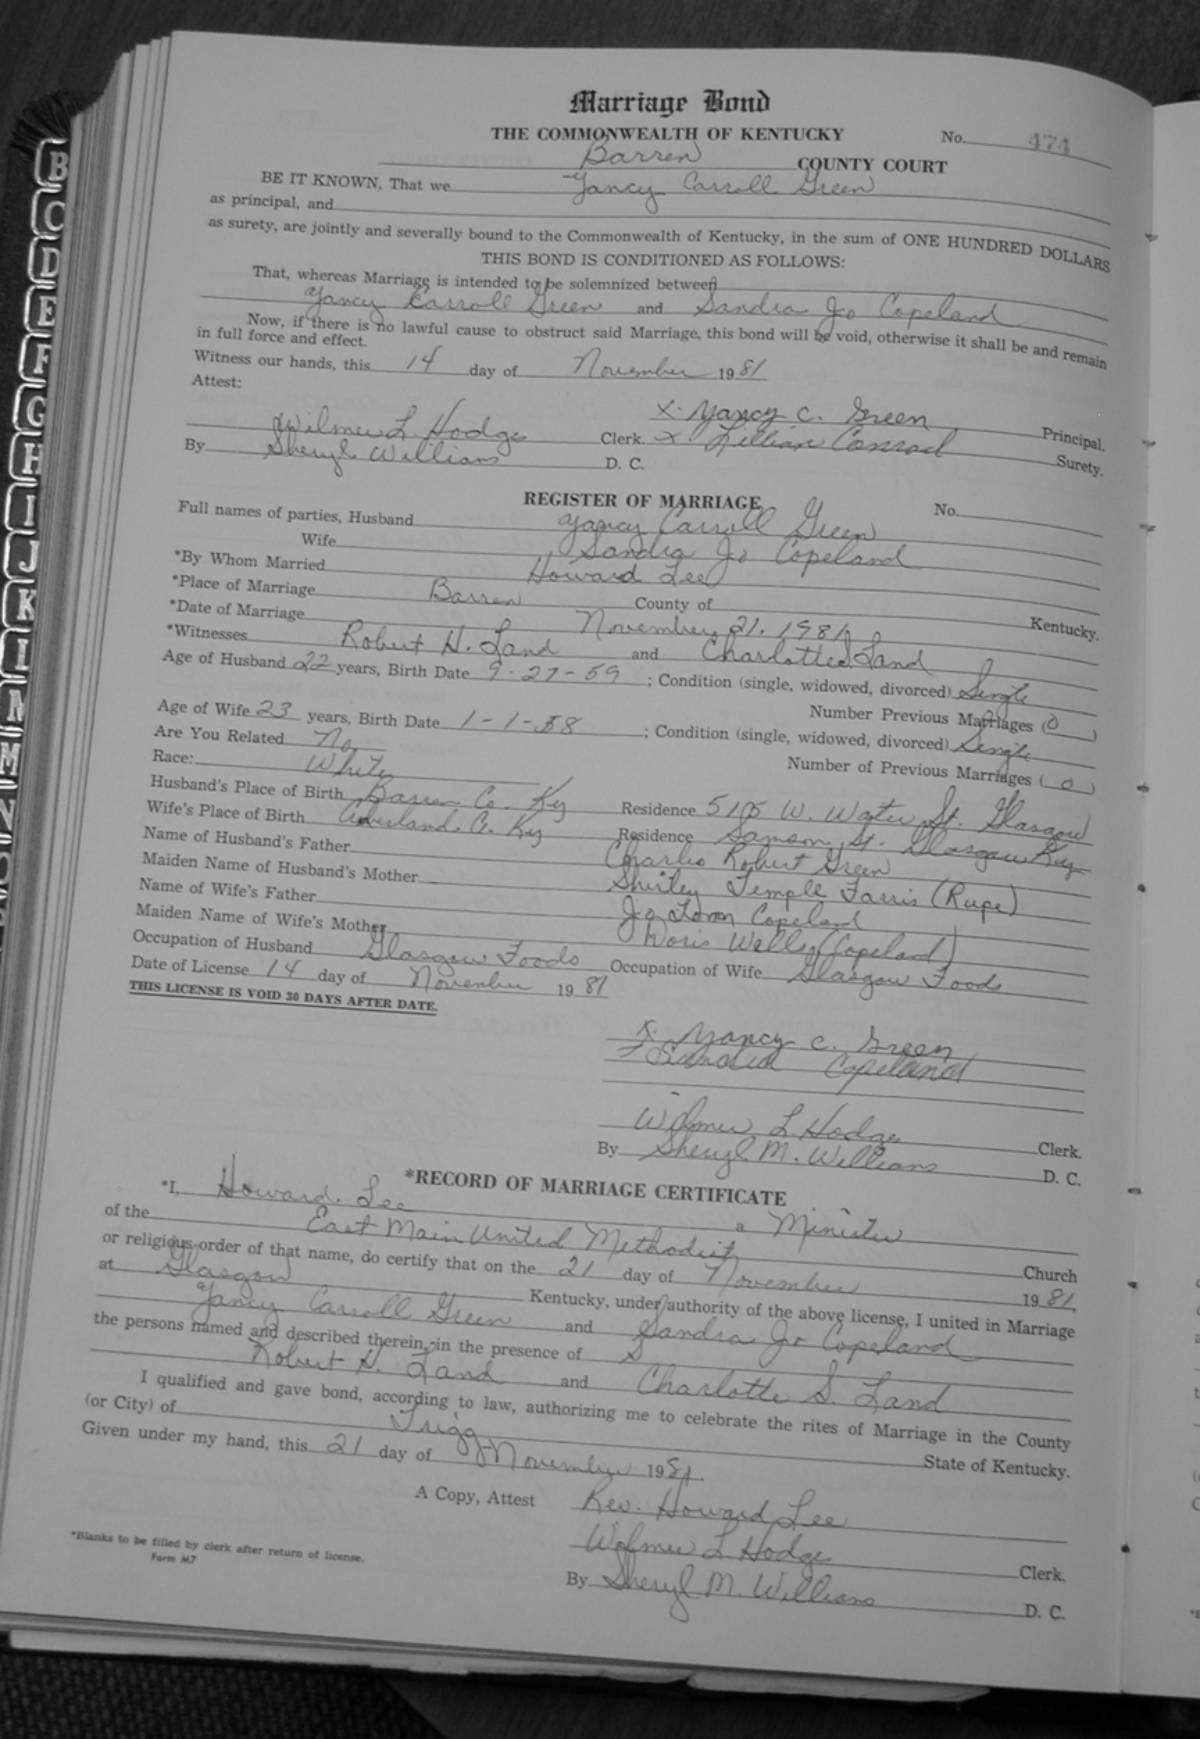 Marriage Bond
THE COMMONWEALTH OF KENTUCKY No. 474
Barren COUNTY COURT
BE IT KNOWN, That we Yancy Carroll Green
as principal, and
as surety, are jointly and severally bound to the Commonwealth of Kentucky, in the sum of ONE HUNDRED DOLLARS
THIS BOND IS CONDITIONED AS FOLLOWS:
That, whereas Marriage is intended to be solemnized between
Yancy Carroll Green and Sandra Jo Copeland
Now, if there is no lawful cause to obstruct said Marriage, this bond will be void, otherwise it shall be and remain
in full force and effect.
Witness our hands, this 14 day of November 1981
Attest:
X. Yancy C. Green Principal.
Wilmer L. Hodge Clerk. X Lillian Conrad Surety.
By Sheryl Williams D. C.
REGISTER OF MARRIAGE No.
Full names of parties, Husband Yancy Carroll Green
Wife Sandra Jo Copeland
*By Whom Married Howard Lee
*Place of Marriage Barren County of Kentucky.
*Date of Marriage November 21, 1981
*Witnesses Robert H. Land and Charlotte S. Land
Age of Husband 22 years, Birth Date 9-27-59 ; Condition (single, widowed, divorced) Single
Number Previous Marriages (0)
Age of Wife 23 years, Birth Date 1-1-58 ; Condition (single, widowed, divorced) Single
Are You Related No Number of Previous Marriages (0)
Race: White
Husband's Place of Birth Barren Co. Ky Residence 510 W. Water St. Glasgow
Wife's Place of Birth Co. Ky Residence Samson St. Glasgow Ky
Name of Husband's Father Charles Robert Green
Maiden Name of Husband's Mother Shirley Temple Farris (Rupe)
Name of Wife's Father Jo Copeland
Maiden Name of Wife's Mother Doris Wells (Copeland)
Occupation of Husband Glasgow Foods Occupation of Wife Glasgow Foods
Date of License 14 day of November 1981
THIS LICENSE IS VOID 30 DAYS AFTER DATE.
X. Yancy C. Green
Sandra Copeland
Wilmer L. Hodge Clerk.
By Sheryl M. Williams D. C.
*RECORD OF MARRIAGE CERTIFICATE
*I, Howard Lee a Minister
of the East Main United Methodist Church
or religious order of that name, do certify that on the 21 day of November 1981,
at Glasgow Kentucky, under authority of the above license, I united in Marriage
Yancy Carroll Green and Sandra Jo Copeland
the persons named and described therein, in the presence of
Robert H. Land and Charlotte S. Land
I qualified and gave bond, according to law, authorizing me to celebrate the rites of Marriage in the County
(or City) of Trigg State of Kentucky.
Given under my hand, this 21 day of November 1981
Rev. Howard Lee
A Copy, Attest Wilmer L Hodge Clerk.
By Sheryl M. Williams D. C.
*Blanks to be filled by clerk after return of license.
Form M7
B
C
D
E
F
G
H
I
J
K
L
M